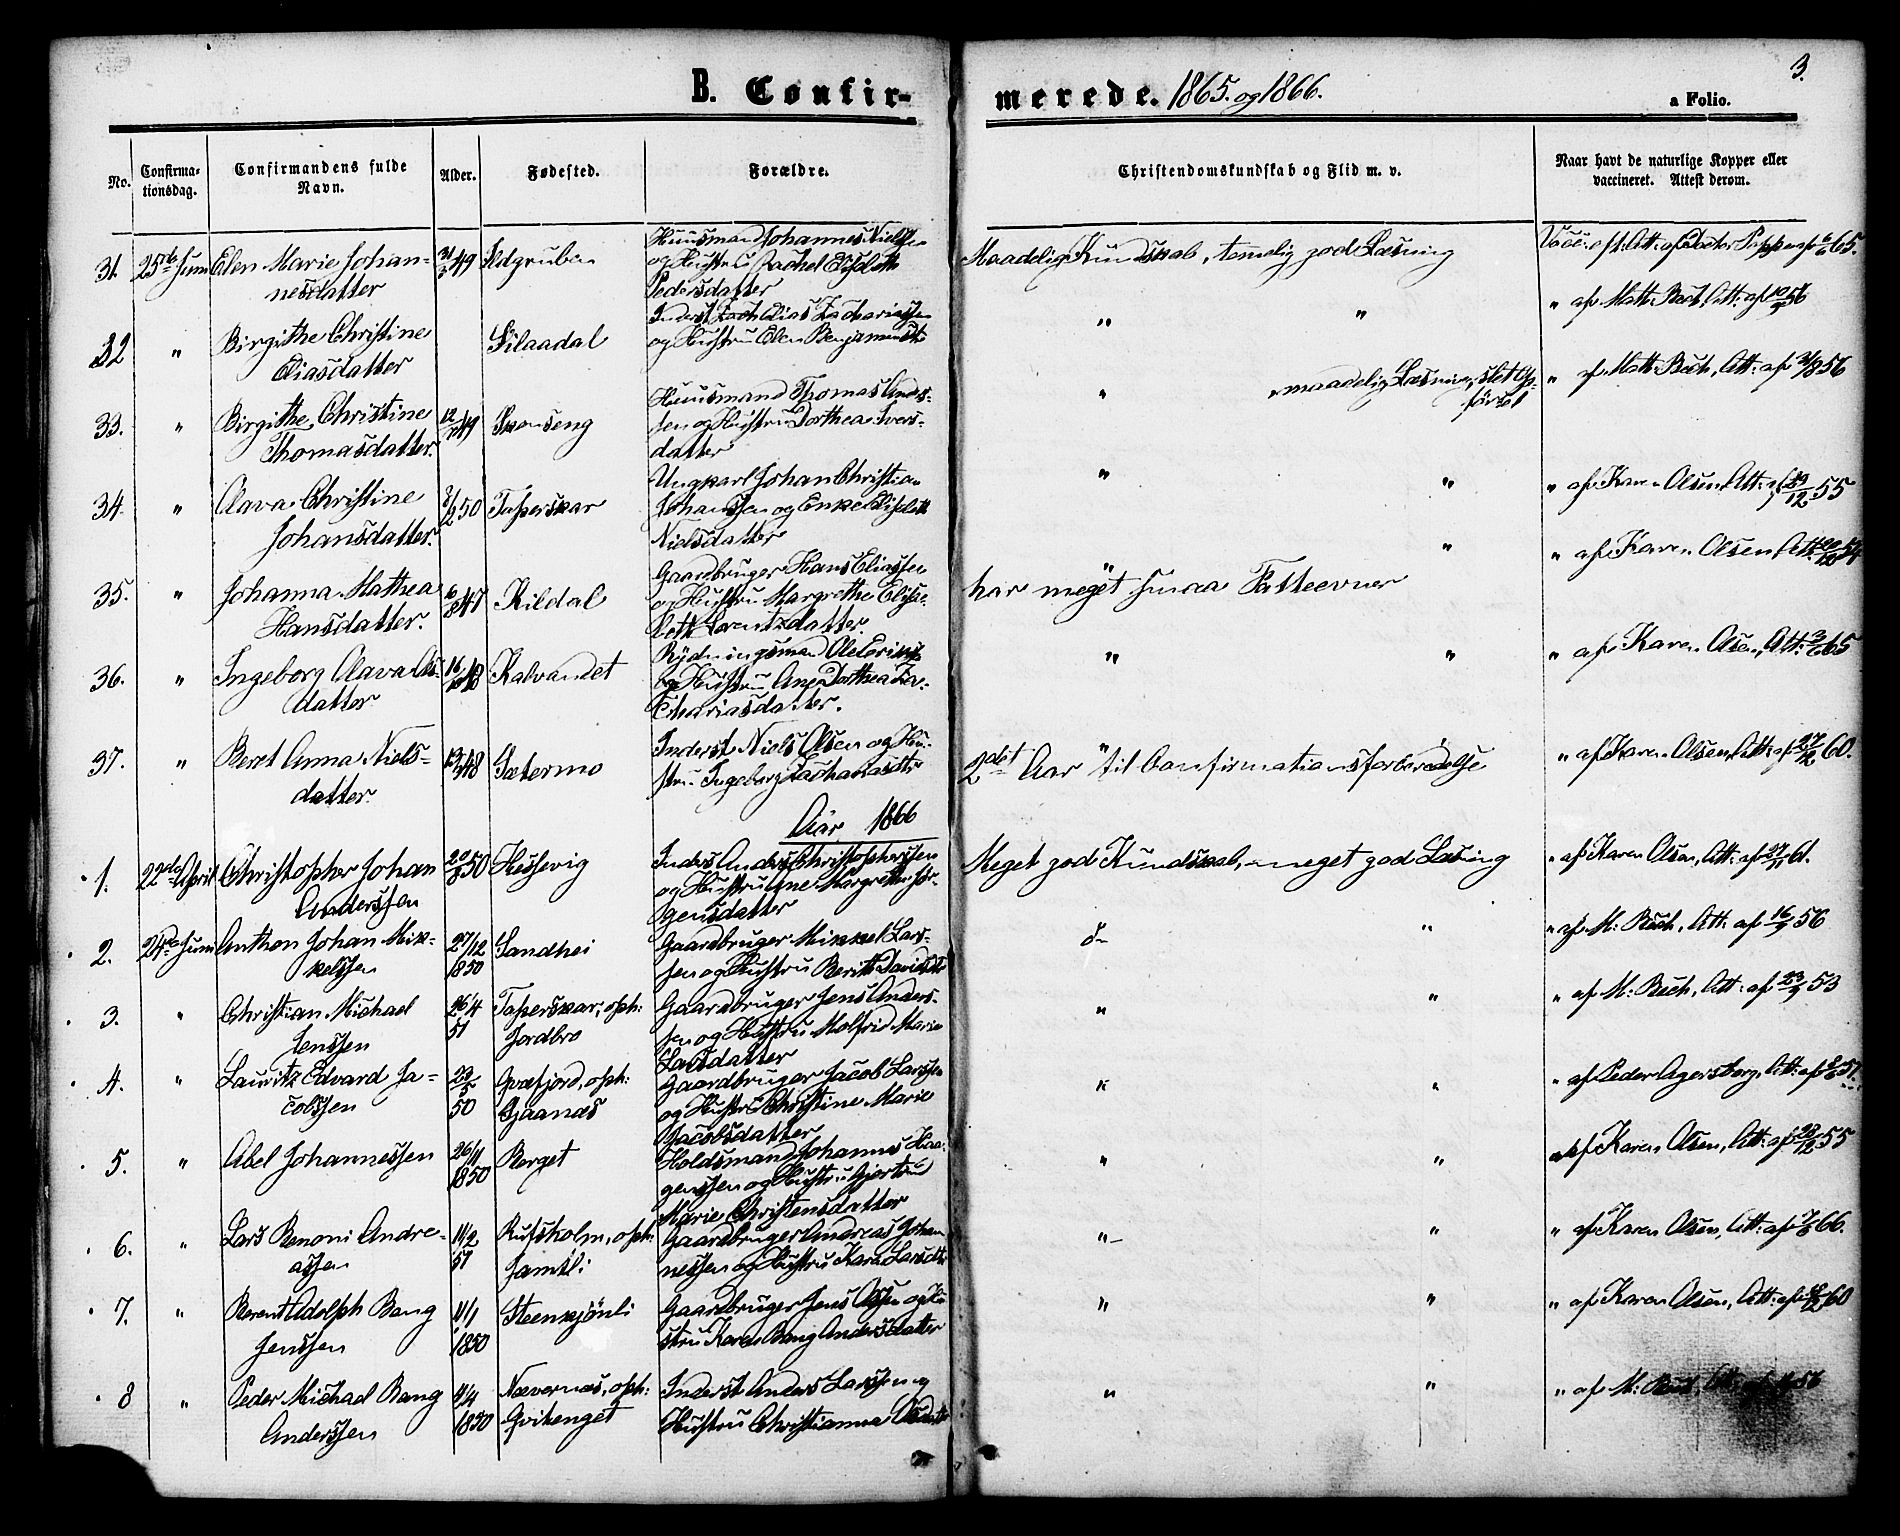 B. Confir-
merede. 1865. og 1866.
3.
a Folio.
No.
Confirma-
tionsdag.
Confirmandens fulde
Navn.
Alder.
Fødested.
Forældre.
Christendomskundskab og Flid m. v.
Naar havt de naturlige Kopper eller
vaccineret. Attest derom.
31. 25de Juni Elen Marie Johan-
nesdatter
49 Ildgruben
Huusmand Johannes Nielsen
og Hustru Rachel
Pedersdatter
Maadelig Kundskab, temelig god Læsning
65.
32 " Birgithe Christine
Eliasdatter
Silaadal
Inderst Elias Zachariassen
og Hustru Elen Benjaminsdtr
" "
" af Math Bech, Att: af 56
33. " Birgithe Christine
Thomasdatter.
49 Skonseng
Huusmand Thomas Anders-
sen og Hustru Dorthea Ivers-
datter
" " maadelig Læsning, slet Op-
førsel
" af Math Bech, Att: af 56
34. " Olava Christine
Johansdatter.
50 Taperskar
Ungkarl Johan Christian
Johanssen og Enke
Nielsdatter
" "
" af Karen Olsen, Att: af 29/12 55
35. " Johanna Mathea
Hansdatter.
47 Kildal
Gaardbruger Hans Eliassen
og Hustru Margrethe Elisa-
beth Lorentzdatter.
" "
har meget smaa Fatteevner
" af Karen Olsen, Att: 54
36. " Ingeborg Olava Ols-
datter
48 Kalvandet
Rydningsmand Ole
og Hustru Ane Dorthea Za-
chariasdatter.
" "
" af Karen Olsen, Att: 65
37. " Beret Anna Niels-
datter.
48 Sætermo
Inderst Niels Olsen og Hu-
stru Ingeborg Zachariasdtr
"
2det Aar til Confirmationsforberedelse
" af Karen Olsen, Att: af 60.
Aar 1866
1. 22de April Christopher Johan
Anderssen
50 Hessevig
Inders Anders Christopherssen
og Hustru Ane Margrethe Jør-
gensdatter
Meget god Kundskab, meget god Læsning
" af Karen Olsen, Att: af 61.
2. 24de Juni Anthon Johan Mik-
kelssen
27/12
1850
Sandhei
Gaardbruger Mikkel Lars-
sen og Hustru Berith Davidsdtr
d- "
" af M: Bech, Att: af 56
3. " Christian Michael
Jenssen
26/4
51
Taperskar, oph:
Jordbro
Gaardbruger Jens Anders-
sen og Hustru Molfrid Marie
Larsdatter
" "
" af M: Bech, Att: af 53
4. " Lauritz Edvard Ja-
cobssen
23/5
50
Qvæfjord, oph:
Gjaanæs
Gaardbruger Jacob Larssen
og Hustr Christine Marie
Jacobsdatter
" "
" af Peder Agersborg, Att: af 51
5. " Abel Johannessen
26/11
1850
Berget
Holdsmand Johannes Haa-
genssen og Hustru Gjertrud
Marie Christensdatter
" "
" af Karen Olsen, Att: af 55
6. " Lars Benoni Andre-
assen
11/2
51
Rufsholm, oph:
Jamtli
Gaardbruger Andreas Johan-
nessen og Hustru Karen Larsdtr
" "
" af Karen Olsen, Att: af 66.
7. " Berent Adolph Bang
Jenssen
11/1
1850
Steenkjønli
Gaardbruger Jens Olssen og Hu
stru Karen Bang Andersdatter
" "
" af Karen Olsen, Att: af 60
8 " Peder Michael Bang
Anderssen
4/4
1850
Nævernæs, oph:
Qvitenget
Inderst Anders Larssen og
Hustru Christianna
" "
" af M: Bech, Att: af 56